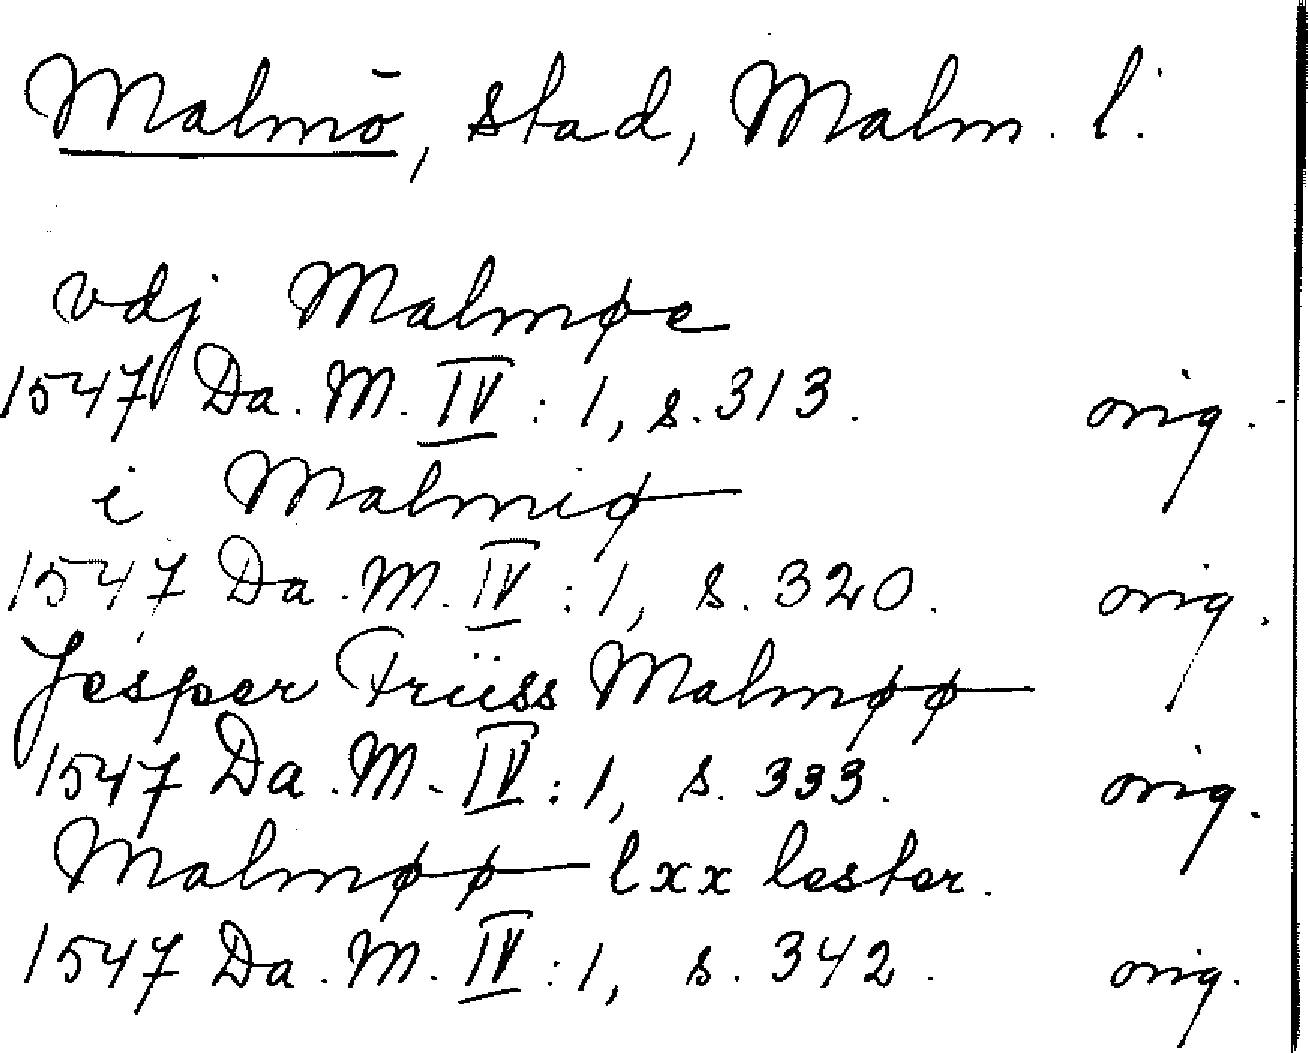 Malmö, stad, Malm. l.
vdj Malmøe
1547 Da. M. IV : 1, s. 313. orig.
i Malmiø
1547 Da. M. IV : 1, s. 320. orig.
Jesper Friiss Malmøø
1547 Da. M. IV : 1, s. 333. orig.
Malmøø lxx lester.
1547 Da. M. IV : 1, s. 342. orig.